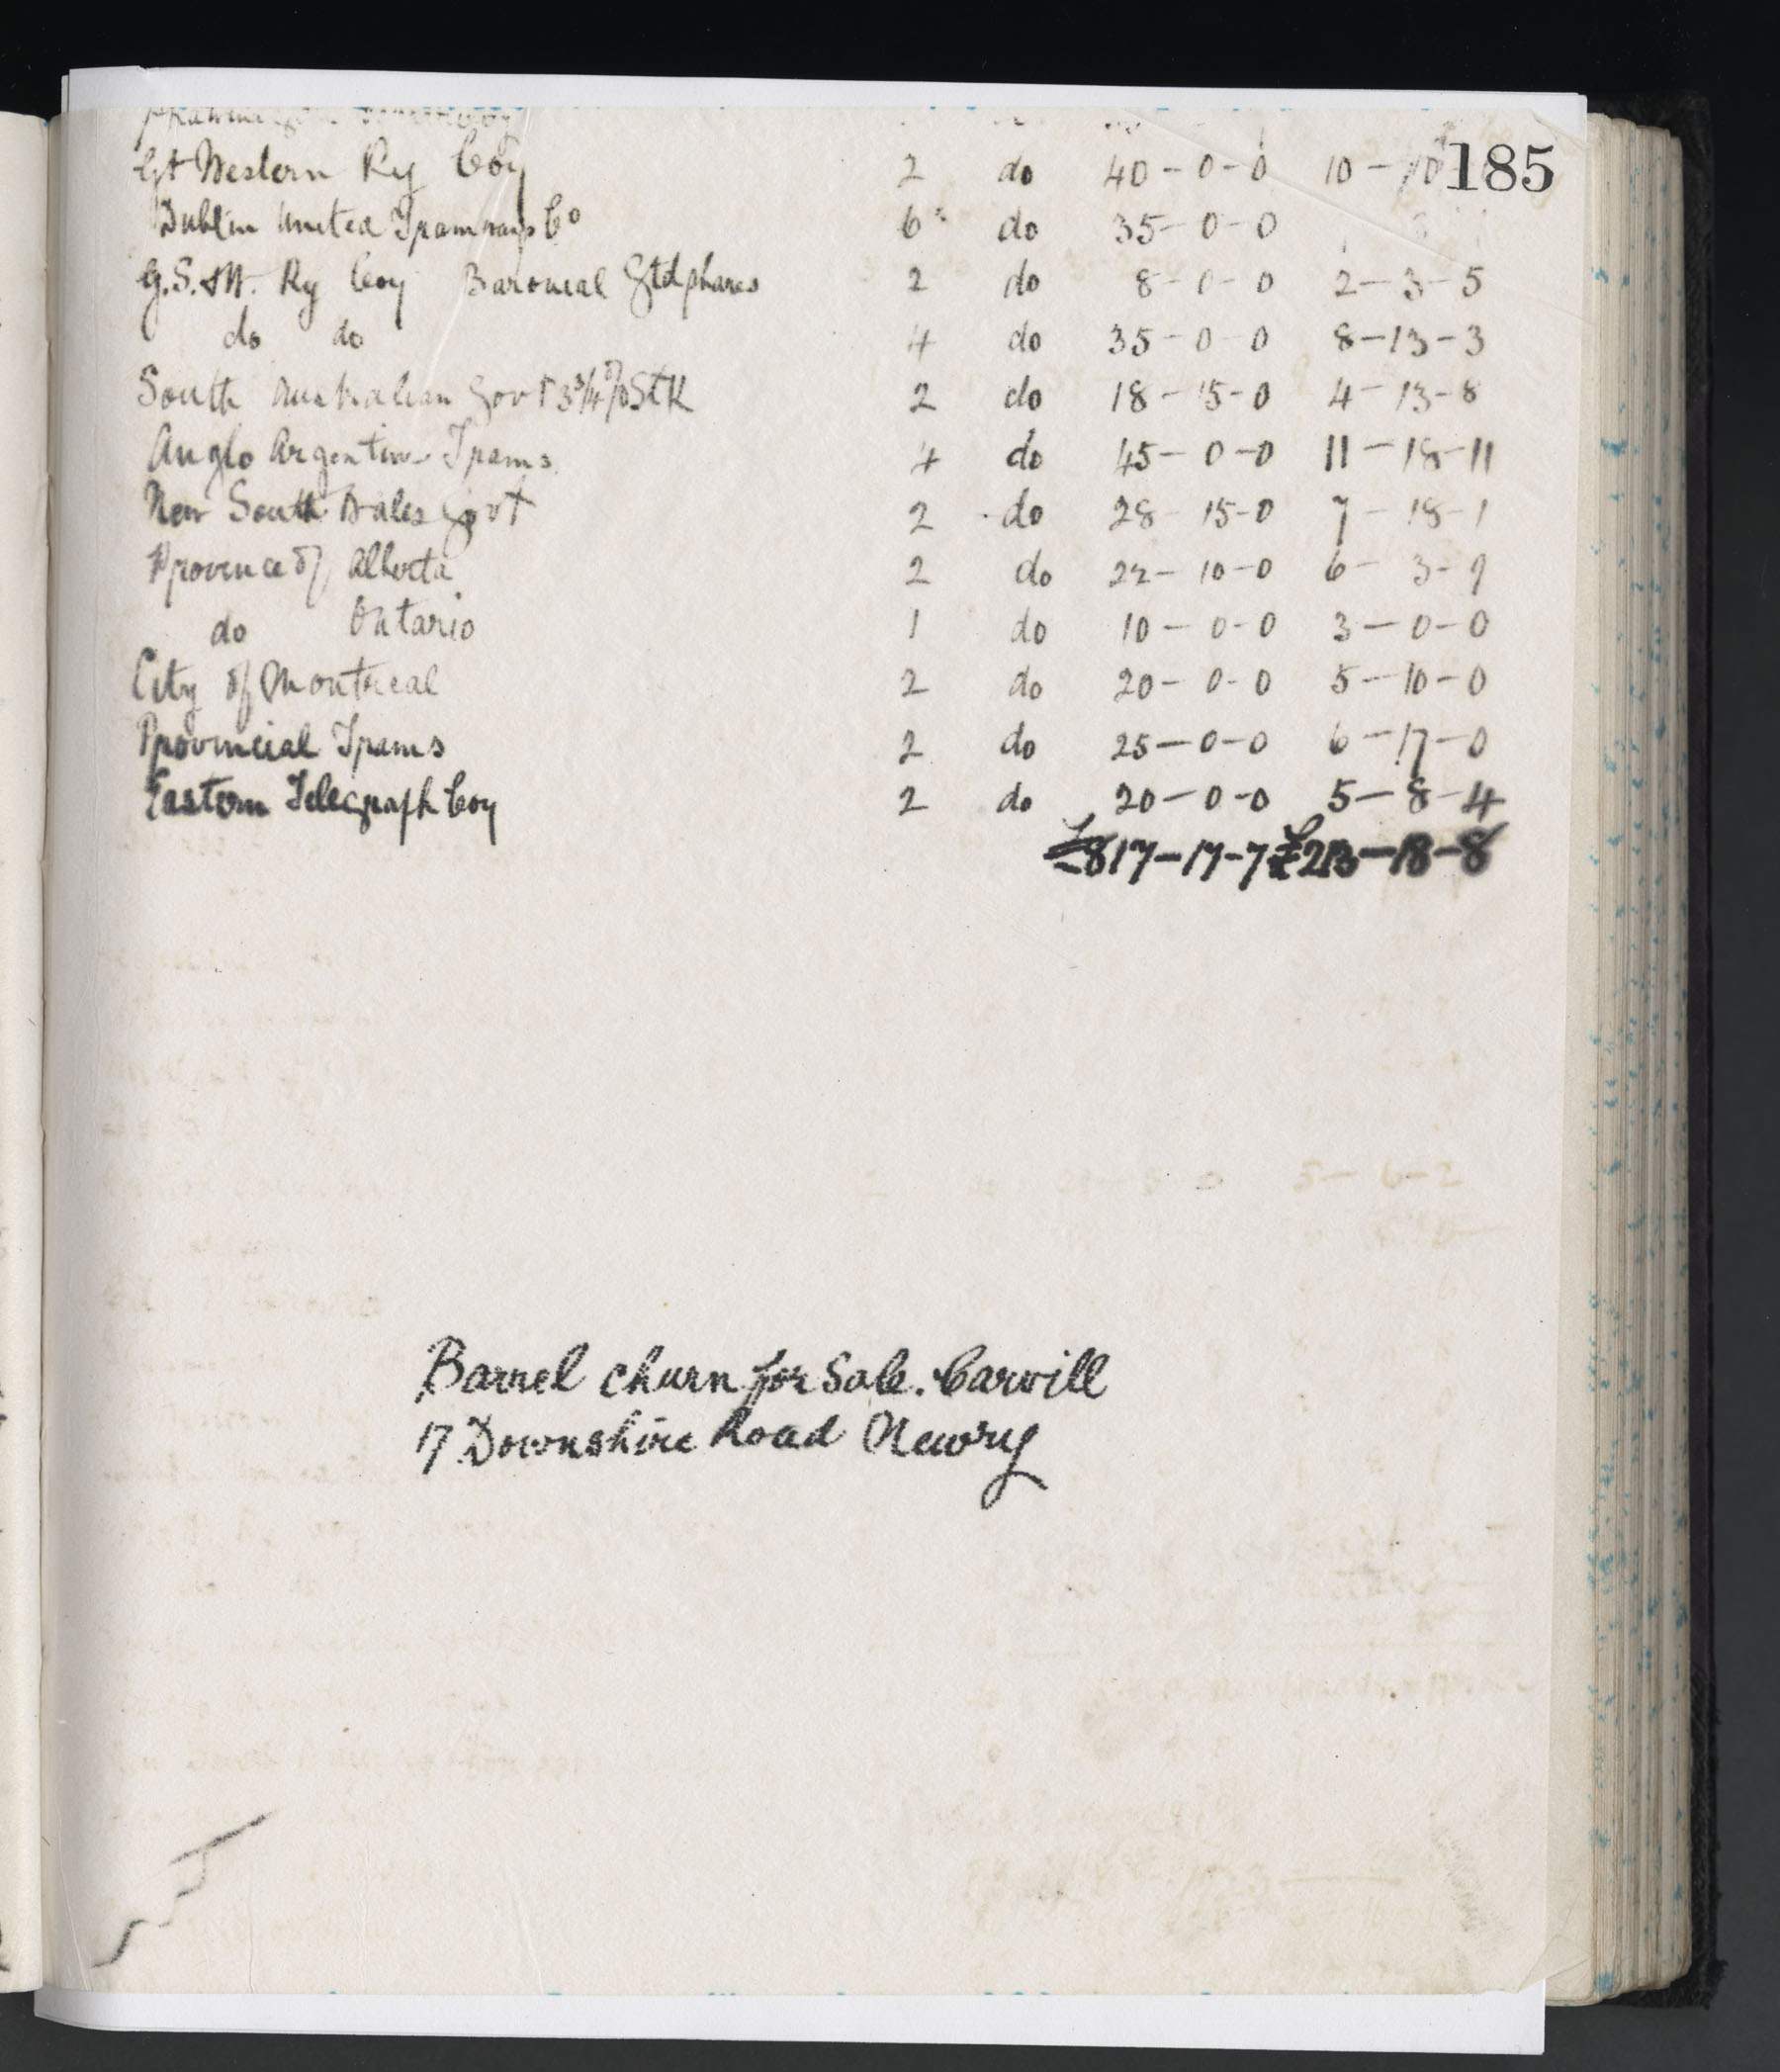 185
Gt Western Ry Coy 2 do 40-0-0 10-10
Dublin United Tramways Co 6 do 35-0-0
G.S.&W. Ry Coy Baronial Gtd shares 2 do 8-0-0 2-3-5
do do 4 do 35-0-0 8-13-3
South Australian Govt 3 3/4 % Stk 2 do 18-15-0 4-13-8
Anglo Argentine Trams 4 do 45-0-0 11-18-11
New South Wales Govt 2 do 28-15-0 7-18-1
Province of Alberta 2 do 22-10-0 6-3-9
do Ontario 1 do 10-0-0 3-0-0
City of Montreal 2 do 20-0-0 5-10-0
Provincial Trams 2 do 25-0-0 6-17-0
Eastern Telegraph Coy 2 do 20-0-0 5-8-4
£817-17-7 £213-18-8
5-6-2
Barrel churn for Sale. Carvill
17 Downshire Road Newry